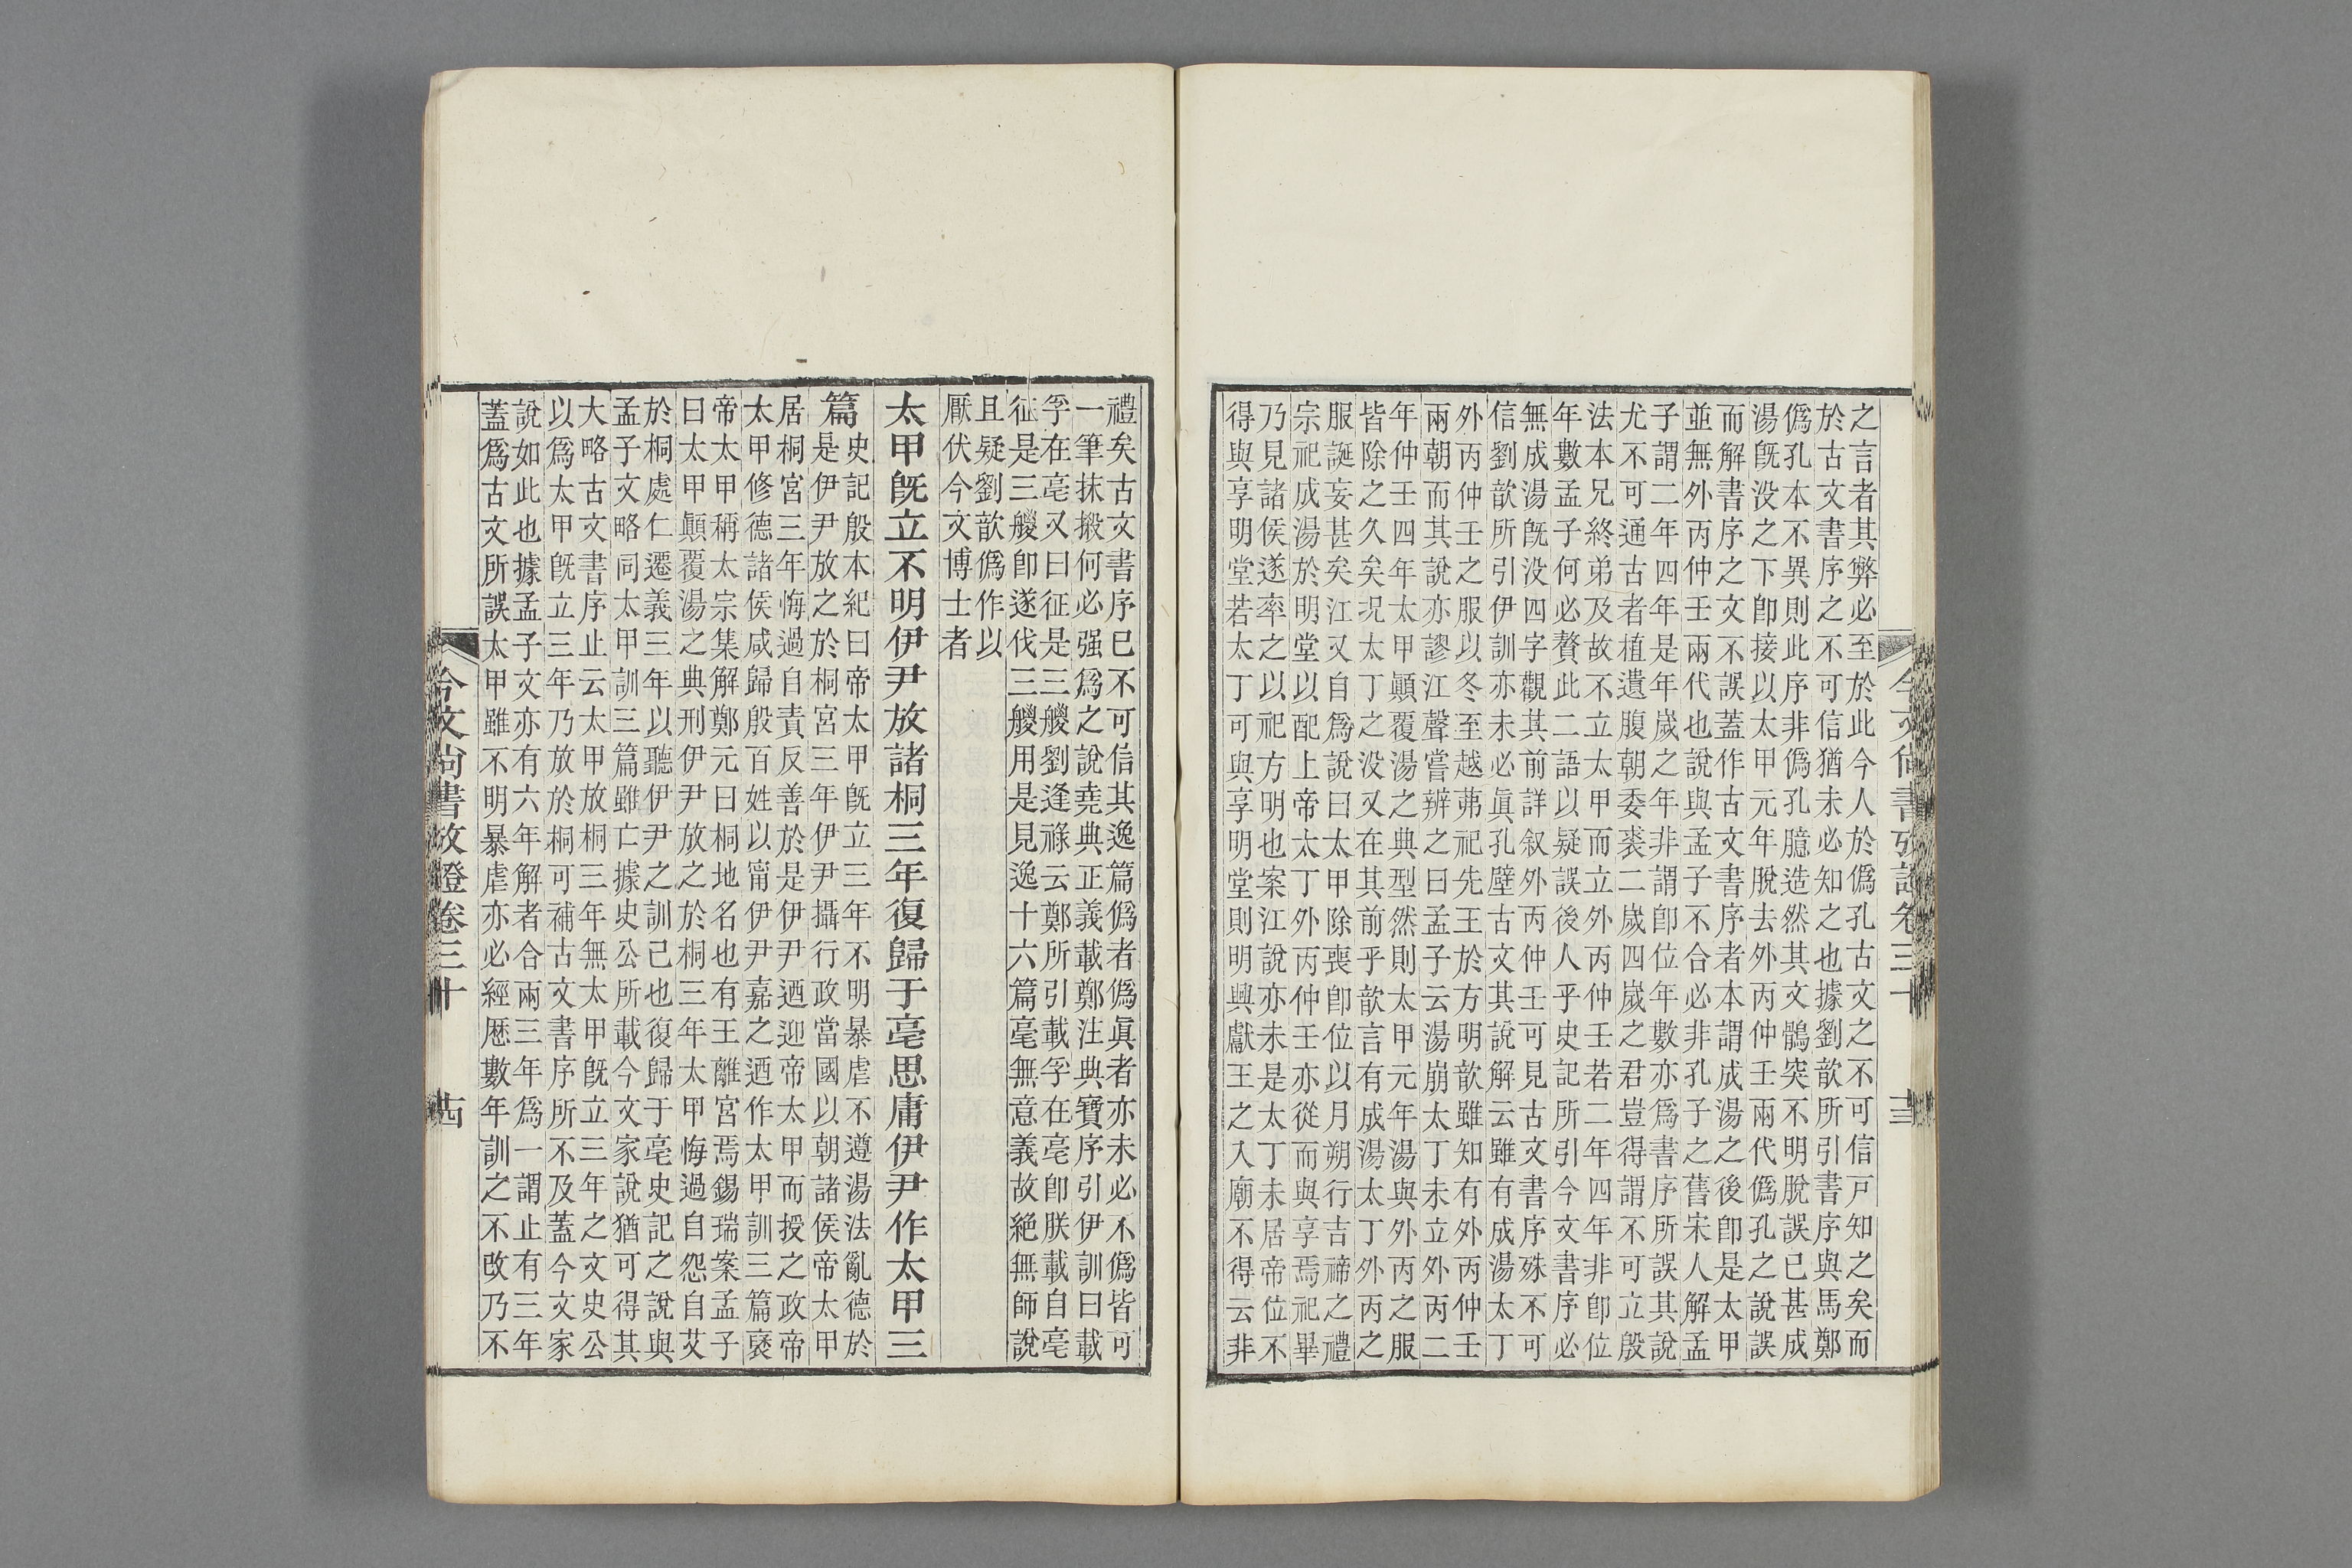 之言者其弊必至於此今人於僞孔古文之不可信戸知之矣而
於古文書序之不可信猶未必知之也據劉歆所引書序與馬鄭
僞孔本不異則此序非僞孔臆造然其文鶻突不明脫誤已甚成
湯旣没之下卽接以太甲元年脫去外丙仲壬兩代僞孔之說誤
而解書序之文不誤蓋作古文書序者本謂成湯之後卽是太甲
並無外丙仲壬兩代也說與孟子不合必非孔子之舊宋人解孟
子謂二年四年是年歲之年非謂卽位年數亦爲書序所誤其說
尤不可通古者植遺腹朝委裘二歲四歲之君豈得謂不可立殷
法本兄終弟及故不立太甲而立外丙仲壬若二年四年非卽位
年數孟子何必贅此二語以疑誤後人乎史記所引今文書序必
無成湯旣没四字觀其前詳叙外丙仲壬可見古文書序殊不可
信劉歆所引伊訓亦未必眞孔壁古文其說解云雖有成湯太丁
外丙仲壬之服以冬至越茀祀先王於方明歆雖知有外丙仲壬
兩朝而其說亦謬江聲嘗辨之曰孟子云湯崩太丁未立外丙二
年仲壬四年太甲顚覆湯之典型然則太甲元年湯與外丙之服
皆除之久矣况太丁之没又在其前乎歆言有成湯太丁外丙之
服誕妄甚矣江又自爲說曰太甲除喪卽位以月朔行吉禘之禮
宗祀成湯於明堂以配上帝太丁外丙仲壬亦從而與享焉祀畢
乃見諸侯遂率之以祀方明也案江說亦未是太丁未居帝位不
得與享明堂若太丁可與享明堂則明興獻王之入廟不得云非
今文尚書攷證卷三十
禮矣古文書序已不可信其逸篇僞者僞眞者亦未必不僞皆可
一筆抹摋何必强爲之說堯典正義載鄭注典寶序引伊訓曰載
孚在亳又曰征是三朡劉逢祿云鄭所引載孚在亳卽朕載自亳
征是三朡卽遂伐三朡用是見逸十六篇毫無意義故絕無師說
且疑劉歆僞作以
厭伏今文博士者
太甲旣立不明伊尹放諸桐三年復歸于亳思庸伊尹作太甲三
篇
史記殷本紀曰帝太甲旣立三年不明暴虐不遵湯法亂德於
是伊尹放之於桐宮三年伊尹攝行政當國以朝諸侯帝太甲
居桐宮三年悔過自責反善於是伊尹迺迎帝太甲而授之政帝
太甲修德諸侯咸歸殷百姓以甯伊尹嘉之迺作太甲訓三篇襃
帝太甲稱太宗集解鄭元曰桐地名也有王離宮焉錫瑞案孟子
曰太甲顚覆湯之典刑伊尹放之於桐三年太甲悔過自怨自艾
於桐處仁遷義三年以聽伊尹之訓己也復歸于亳史記之說與
孟子文略同太甲訓三篇雖亡據史公所載今文家說猶可得其
大略古文書序止云太甲放桐三年無太甲旣立三年之文史公
以爲太甲旣立三年乃放於桐可補古文書序所不及蓋今文家
說如此也據孟子文亦有六年解者合兩三年爲一謂止有三年
蓋爲古文所誤太甲雖不明暴虐亦必經厯數年訓之不改乃不
今文尚書攷證卷三十　　　　古